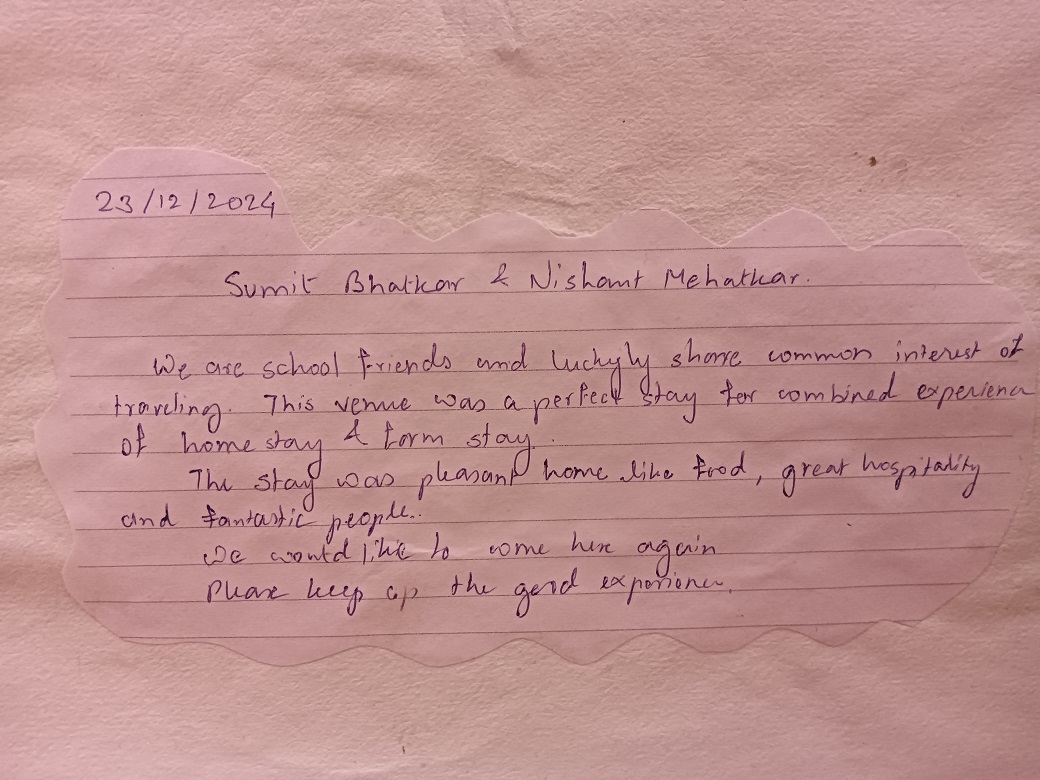 23/12/2024
Sumit Bhatkar & Nishant Mehatkar.
We are school friends and luckyly share common interest of
traveling. This venue was a perfect stay for combined experience
of home stay & farm stay.
The stay was pleasant home like food, great hospitality
and fantastic people..
We would like to come here again
Please keep up the good experience.